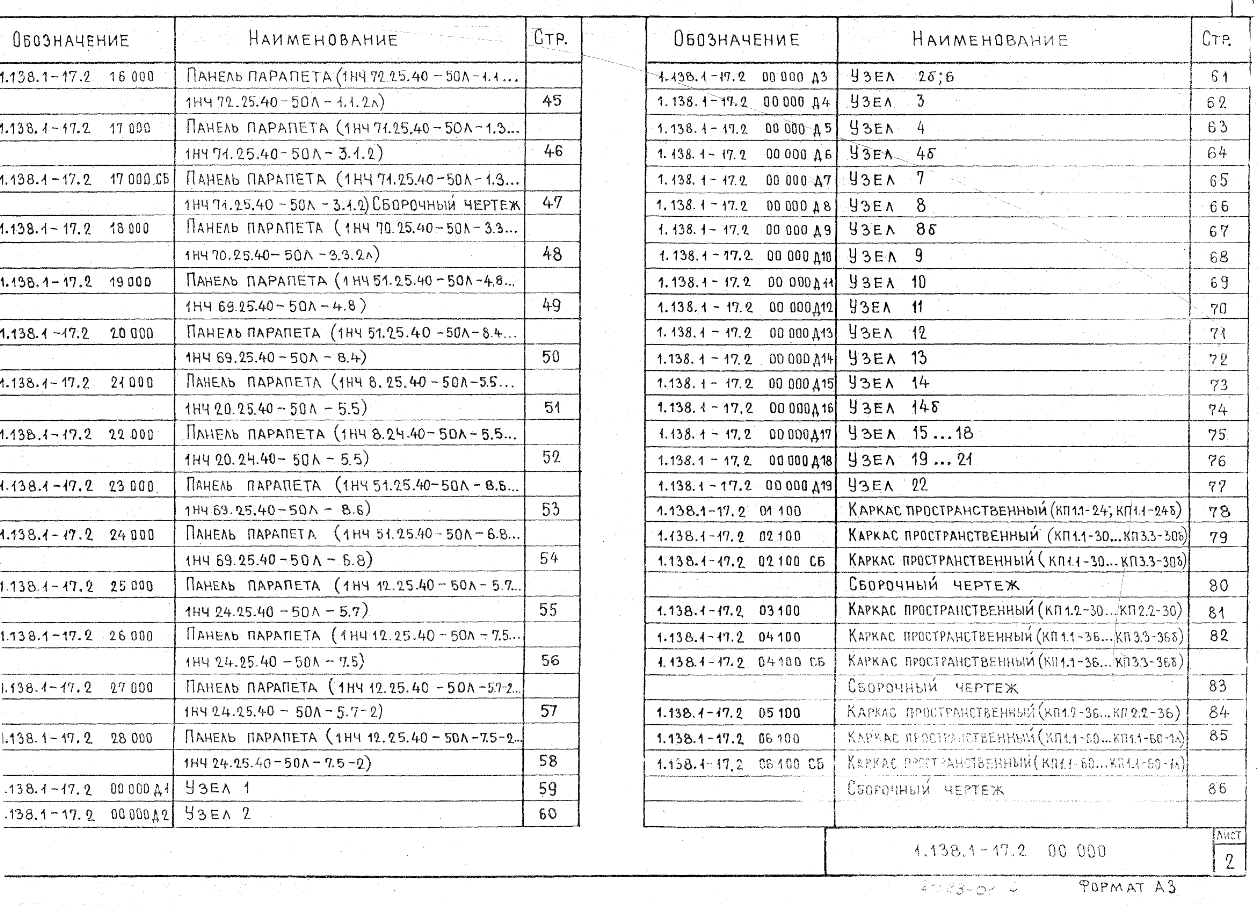 Обозначение Наименование Стр.
1.138.1-17.2 16 000 Панель парапета (1НЧ 72.25.40-50Л-1.1...
1НЧ 72.25.40-50Л-1.1.2л) 45
1.138.1-17.2 17 000 Панель парапета (1НЧ 71.25.40-50Л-1.3...
1НЧ 71.25.40-50Л-3.1.2) 46
1.138.1-17.2 17 000 СБ Панель парапета (1НЧ 71.25.40-50Л-1.3...
1НЧ 71.25.40-50Л-3.1.2) Сборочный чертеж 47
1.138.1-17.2 18 000 Панель парапета (1НЧ 70.25.40-50Л-3.3...
1НЧ 70.25.40-50Л-3.3.2л) 48
1.138.1-17.2 19 000 Панель парапета (1НЧ 51.25.40-50Л-4.8...
1НЧ 69.25.40-50Л-4.8) 49
1.138.1-17.2 20 000 Панель парапета (1НЧ 51.25.40-50Л-8.4...
1НЧ 69.25.40-50Л-8.4) 50
1.138.1-17.2 21 000 Панель парапета (1НЧ 8.25.40-50Л-5.5...
1НЧ 20.25.40-50Л-5.5) 51
1.138.1-17.2 22 000 Панель парапета (1НЧ 8.24.40-50Л-5.5...
1НЧ 20.24.40-50Л-5.5) 52
1.138.1-17.2 23 000 Панель парапета (1НЧ 51.25.40-50Л-8.6...
1НЧ 69.25.40-50Л-8.6) 53
1.138.1-17.2 24 000 Панель парапета (1НЧ 51.25.40-50Л-6.8...
1НЧ 69.25.40-50Л-6.8) 54
1.138.1-17.2 25 000 Панель парапета (1НЧ 12.25.40-50Л-5.7...
1НЧ 24.25.40-50Л-5.7) 55
1.138.1-17.2 26 000 Панель парапета (1НЧ 12.25.40-50Л-7.5...
1НЧ 24.25.40-50Л-7.5) 56
1.138.1-17.2 27 000 Панель парапета (1НЧ 12.25.40-50Л-5.7-2...
1НЧ 24.25.40-50Л-5.7-2) 57
1.138.1-17.2 28 000 Панель парапета (1НЧ 12.25.40-50Л-7.5-2...
1НЧ 24.25.40-50Л-7.5-2) 58
.138.1-17.2 00 000 Д1 Узел 1 59
.138.1-17.2 00 000 Д2 Узел 2 60
Обозначение Наименование Стр.
1.138.1-17.2 00 000 Д3 Узел 2б; 6 61
1.138.1-17.2 00 000 Д4 Узел 3 62
1.138.1-17.2 00 000 Д5 Узел 4 63
1.138.1-17.2 00 000 Д6 Узел 4б 64
1.138.1-17.2 00 000 Д7 Узел 7 65
1.138.1-17.2 00 000 Д8 Узел 8 66
1.138.1-17.2 00 000 Д9 Узел 8б 67
1.138.1-17.2 00 000 Д10 Узел 9 68
1.138.1-17.2 00 000 Д11 Узел 10 69
1.138.1-17.2 00 000 Д12 Узел 11 70
1.138.1-17.2 00 000 Д13 Узел 12 71
1.138.1-17.2 00 000 Д14 Узел 13 72
1.138.1-17.2 00 000 Д15 Узел 14 73
1.138.1-17.2 00 000 Д16 Узел 14б 74
1.138.1-17.2 00 000 Д17 Узел 15...18 75
1.138.1-17.2 00 000 Д18 Узел 19...21 76
1.138.1-17.2 00 000 Д19 Узел 22 77
1.138.1-17.2 01 100 Каркас пространственный (КП1.1-24; КП1.1-24б) 78
1.138.1-17.2 02 100 Каркас пространственный (КП1.1-30...КП3.3-30б) 79
1.138.1-17.2 02 100 СБ Каркас пространственный (КП1.1-30...КП3.3-30б)
Сборочный чертеж 80
1.138.1-17.2 03 100 Каркас пространственный (КП1.2-30...КП2.2-30) 81
1.138.1-17.2 04 100 Каркас пространственный (КП1.1-36...КП3.3-36б) 82
1.138.1-17.2 04 100 СБ Каркас пространственный (КП1.1-36...КП3.3-36б)
Сборочный чертеж 83
1.138.1-17.2 05 100 Каркас пространственный (КП1.2-36...КП2.2-36) 84
1.138.1-17.2 06 100 Каркас пространственный (КП1.1-60...КП1.1-60-1л) 85
1.138.1-17.2 06 100 СБ Каркас пространственный (КП1.1-60...КП1.1-60-1л)
Сборочный чертеж 86
1.138.1-17.2 00 000
Лист
2
Формат А3